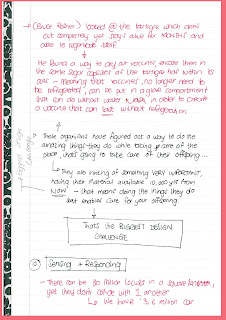 → (Bruce Rosner) looked @ the tardigrade which dries
out completely yet stays alive for MONTHS and
able to regenerate itself
He found a way to dry out vaccines, encase them in
the same sugar capsules as the tardigrade has within its
core - meaning that vaccines no longer need to
be refrigerated, can be put in a glove compartment
that can do without water in order to create
a vaccine that can last without refrigeration
These organisms have figured out a way to do the
amazing things they do while taking care of the
place that's going to take care of their offspring...
↳ They are thinking of something VERY IMPORTANT,
having their material available 10,000 yrs from
NOW - that means doing the things they do
without for your offspring.
THAT'S the BIGGEST DESIGN
CHALLENGE
biggest design
challenge
Sensing + Responding
- There can be 80 million locusts in a square kilometre,
yet they don't collide with 1 another
↳ We have 3.6 million car